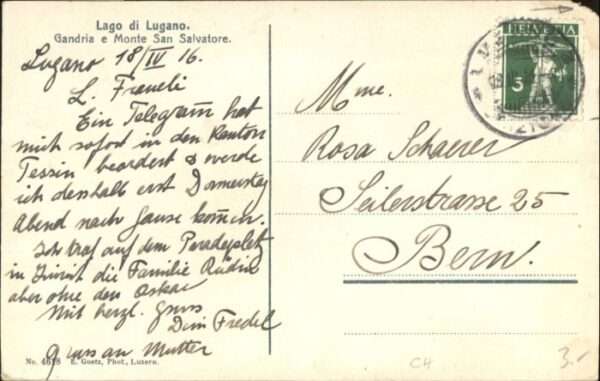 Lago di Lugano.
Gandria e Monte San Salvatore.
Lugano 18/IV 16.
L. Fraueli
Ein Telegram hat
mich sofort in den Kanton
Tessin beordert & werde
ich deshalb erst Donnerstag
Abend nach Hause kommen.
Ich traf auf dem Paradeplatz
in Zürich die Familie
aber ohne den Oskar
Mit herzl. Gruss
Dein Fredel
Gruss an Mutter
No. 4618 E. Goetz, Phot., Luzern.
HELVETIA
5
Mme.
Rosa Schaerer
Seilerstrasse 25
Bern.
C4
3.-